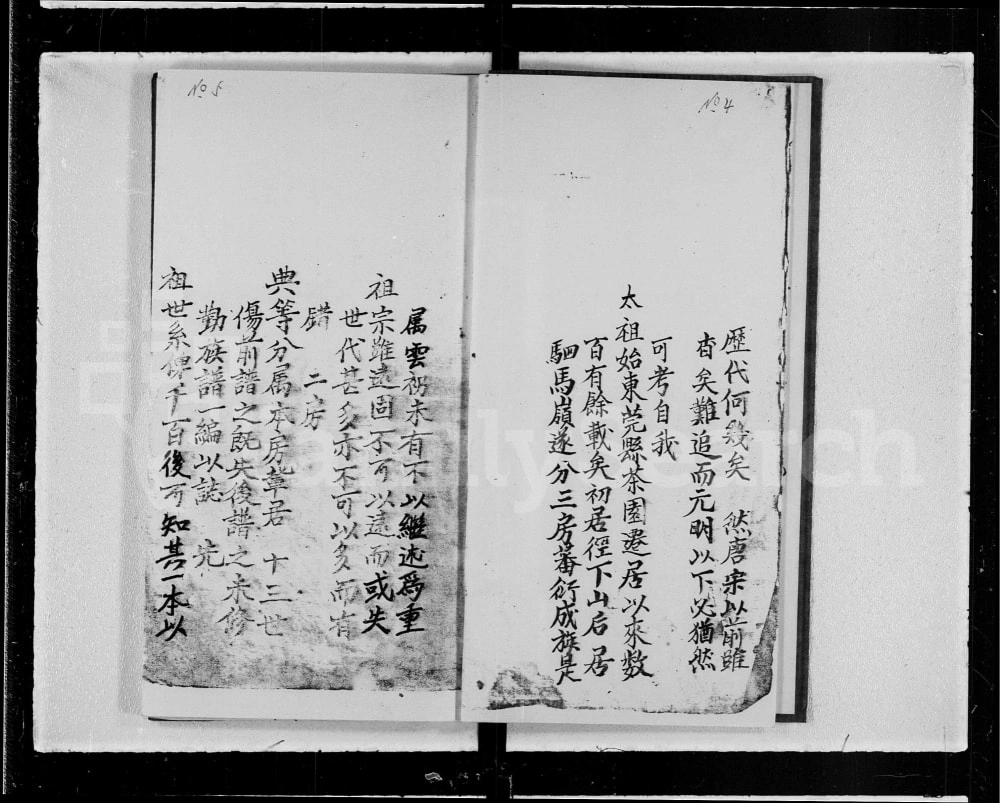 № 4
歷代何幾矣　然唐宋以前雖
杳矣難追而元明以下必猶然
可考自我
太祖始東莞縣茶園遷居以來数
百有餘載矣初居徑下山后居
駟馬嶺遂分三房蕃衍成族是
№ 5
属雲礽未有不以繼述爲重
祖宗雖遠固不可以遠而或失
世代甚多亦不可以多而有
錯　二房
典等分属本房章君　十三世
傷前譜之既失後譜之未修
勷族譜一編以誌　先
祖世系俾千百後可知其一本以
FamilySearch